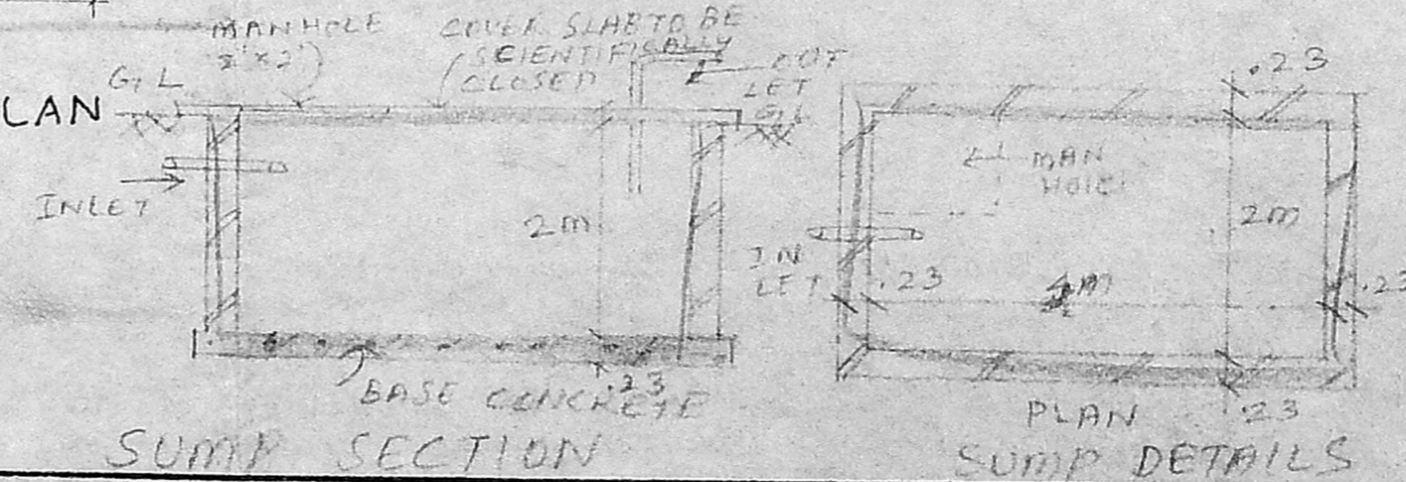 MANHOLE
2'x2'
COVER SLAB TO BE
SCIENTIFICALLY
CLOSED
OUT
LET
G.L
G.L
LAN
INLET
2m
.23
BASE CONCRETE
SUMP SECTION
.23
MAN
HOLE
2m
IN
LET
.23
4m
.23
PLAN
.23
SUMP DETAILS